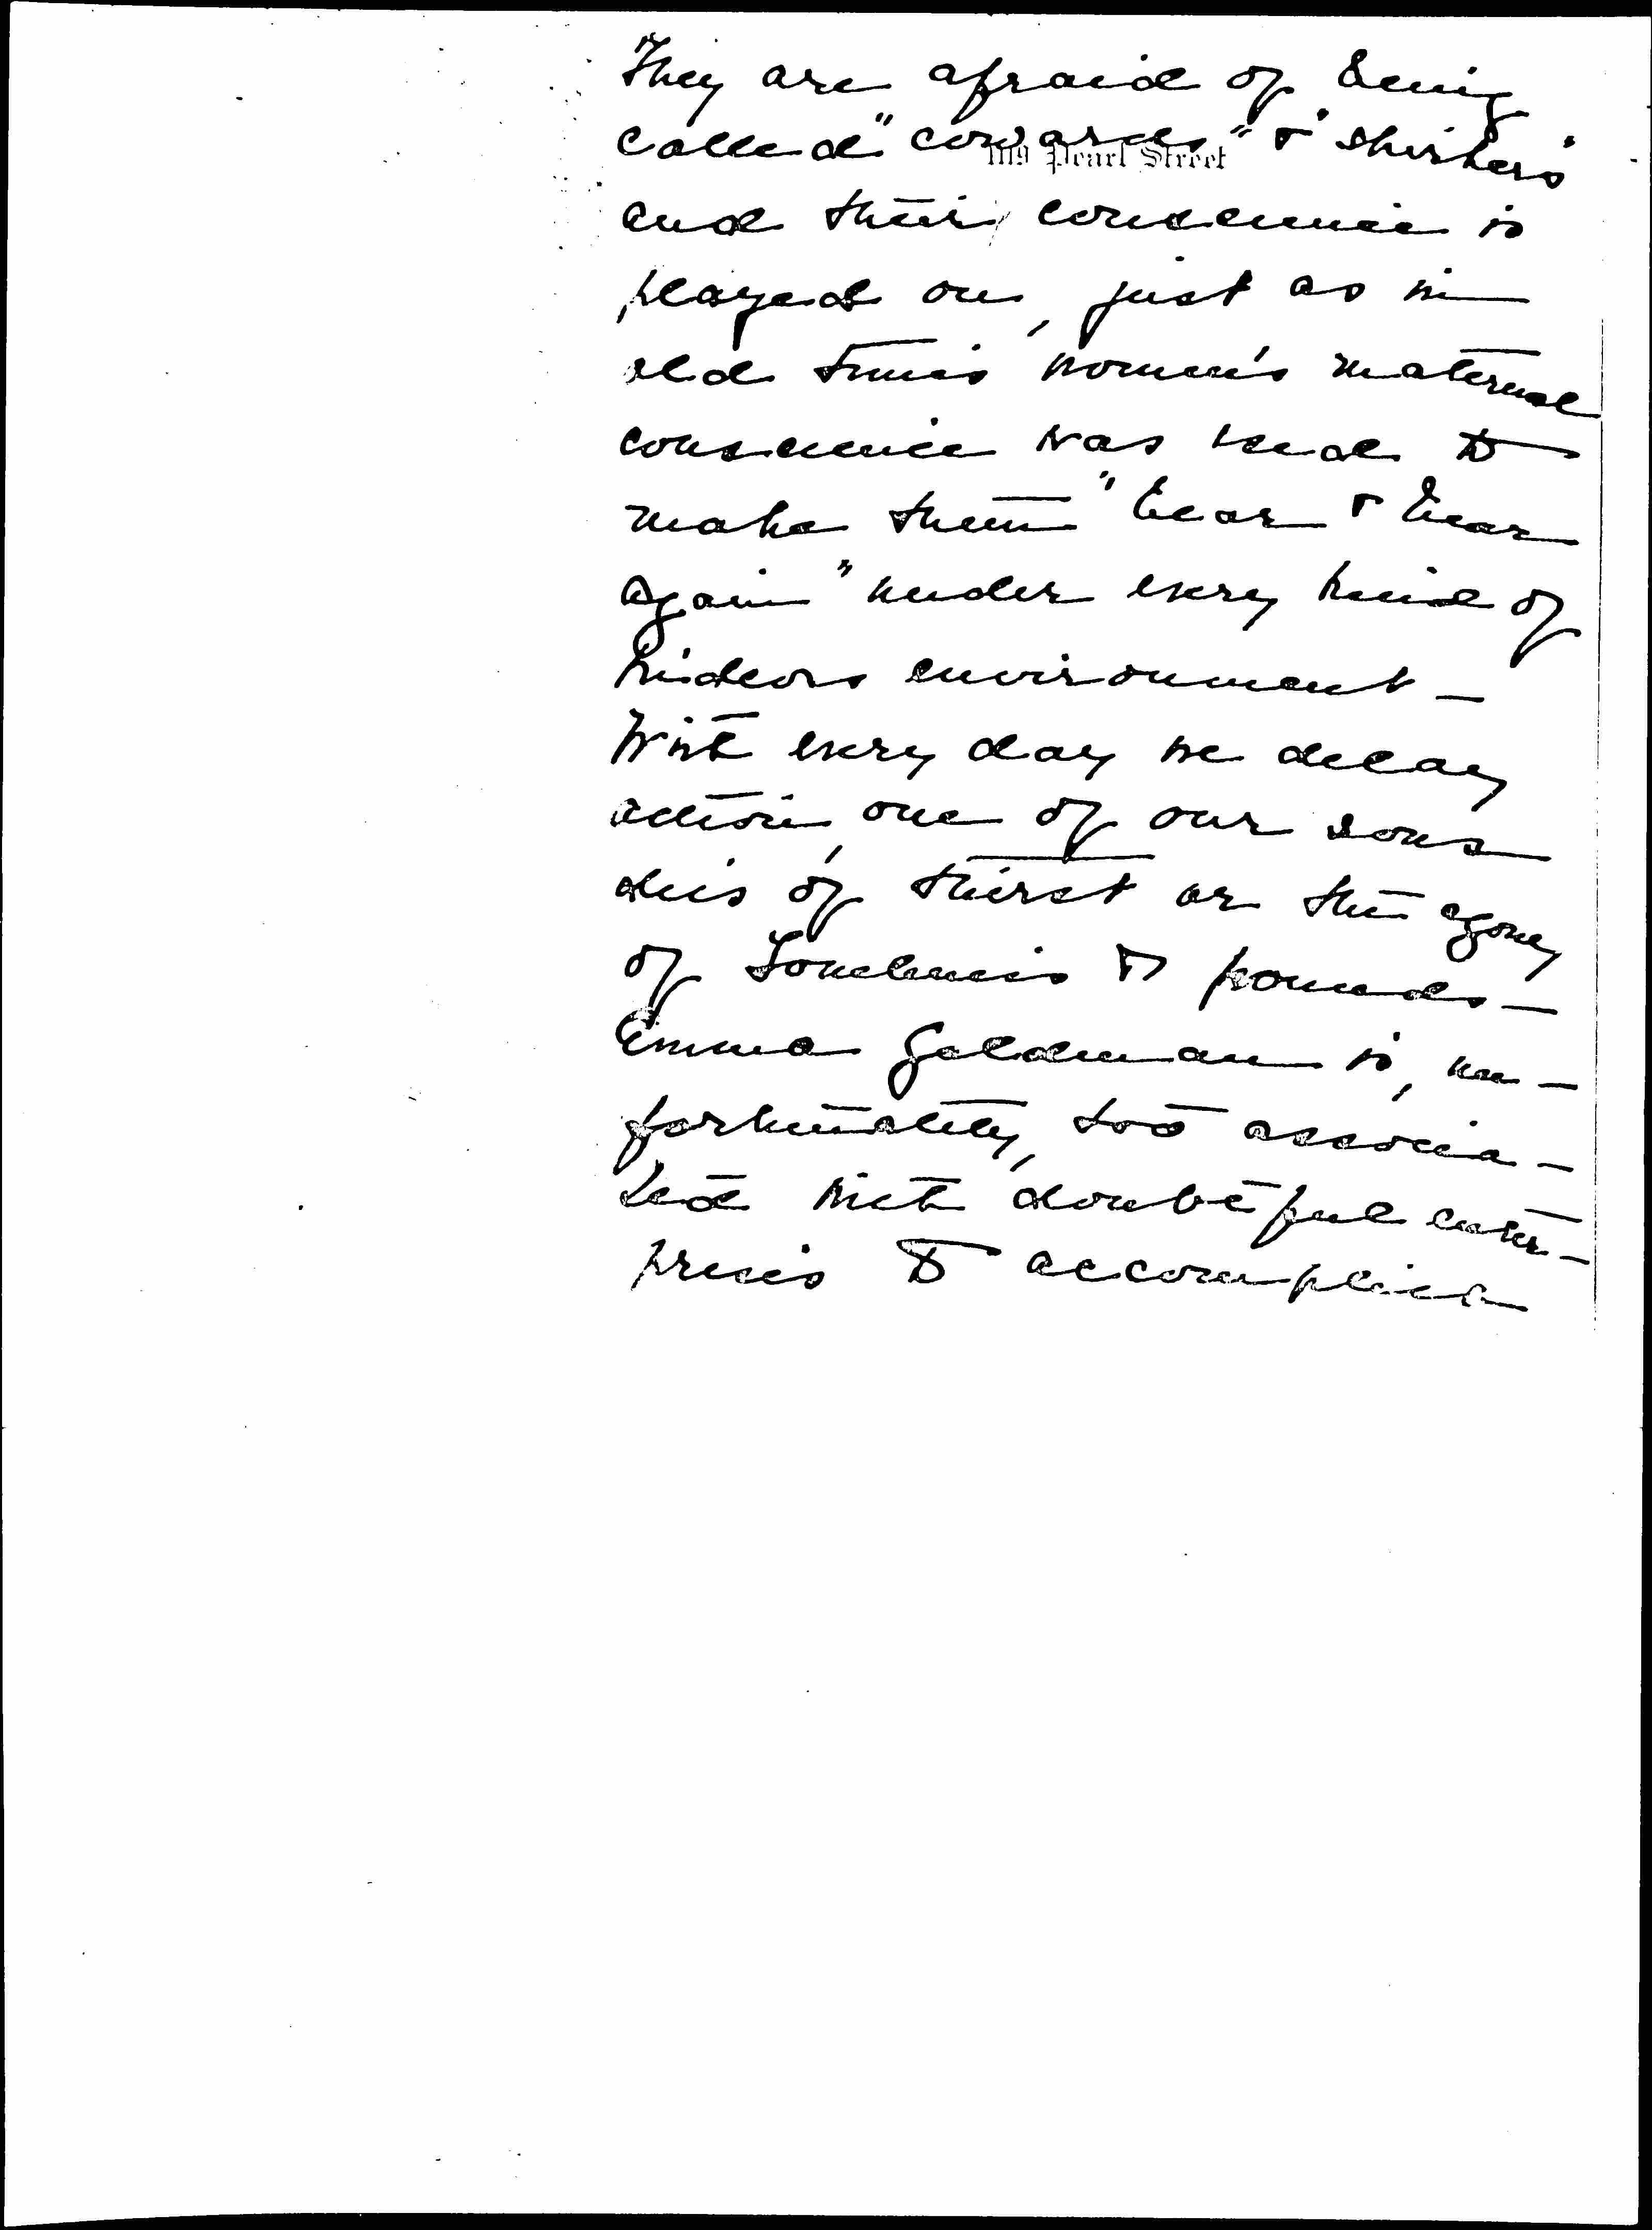 They are afraid of being
called "cowards" & "shirkers"
1119 Pearl Street
and their conscience is
played on, just as in
old times women's maternal
conscience was used to
make them "bear & bear
again" under every kind of
hideous environment –
With every day we delay
action, one of our sons
dies of thirst or the agony
of loneliness & wounds –
Emma Goldman is, un-
fortunately, too associa-
ted with doubtful enter-
prises to accomplish